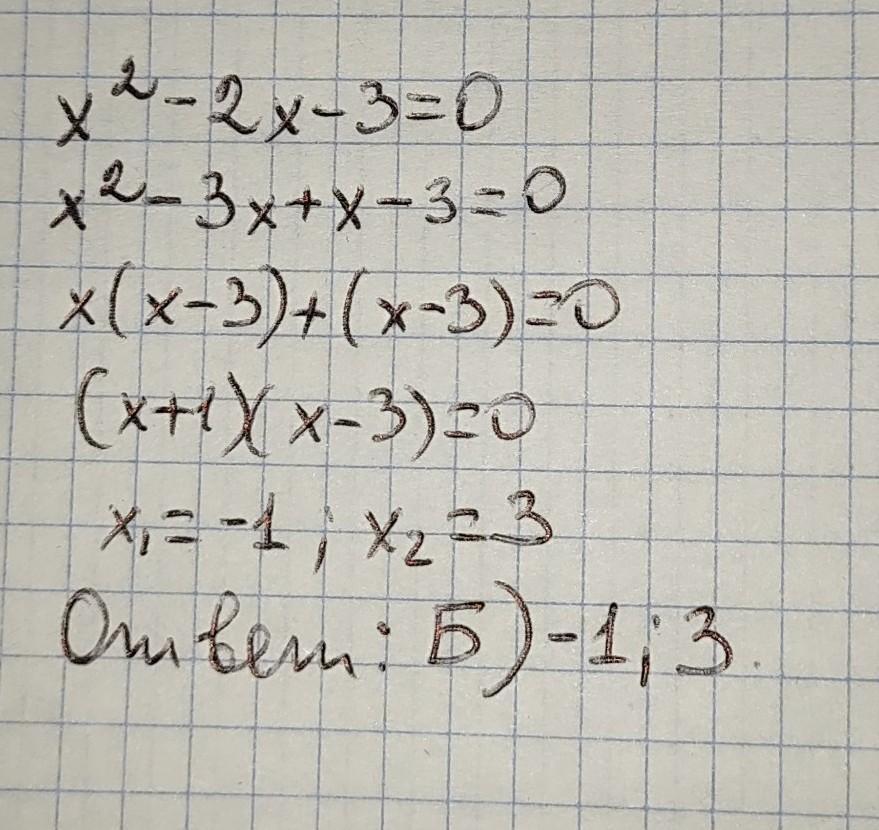 x² - 2x - 3 = 0
x² - 3x + x - 3 = 0
x(x - 3) + (x - 3) = 0
(x + 1)(x - 3) = 0
x₁ = -1 ; x₂ = 3
Ответ: Б) -1; 3.